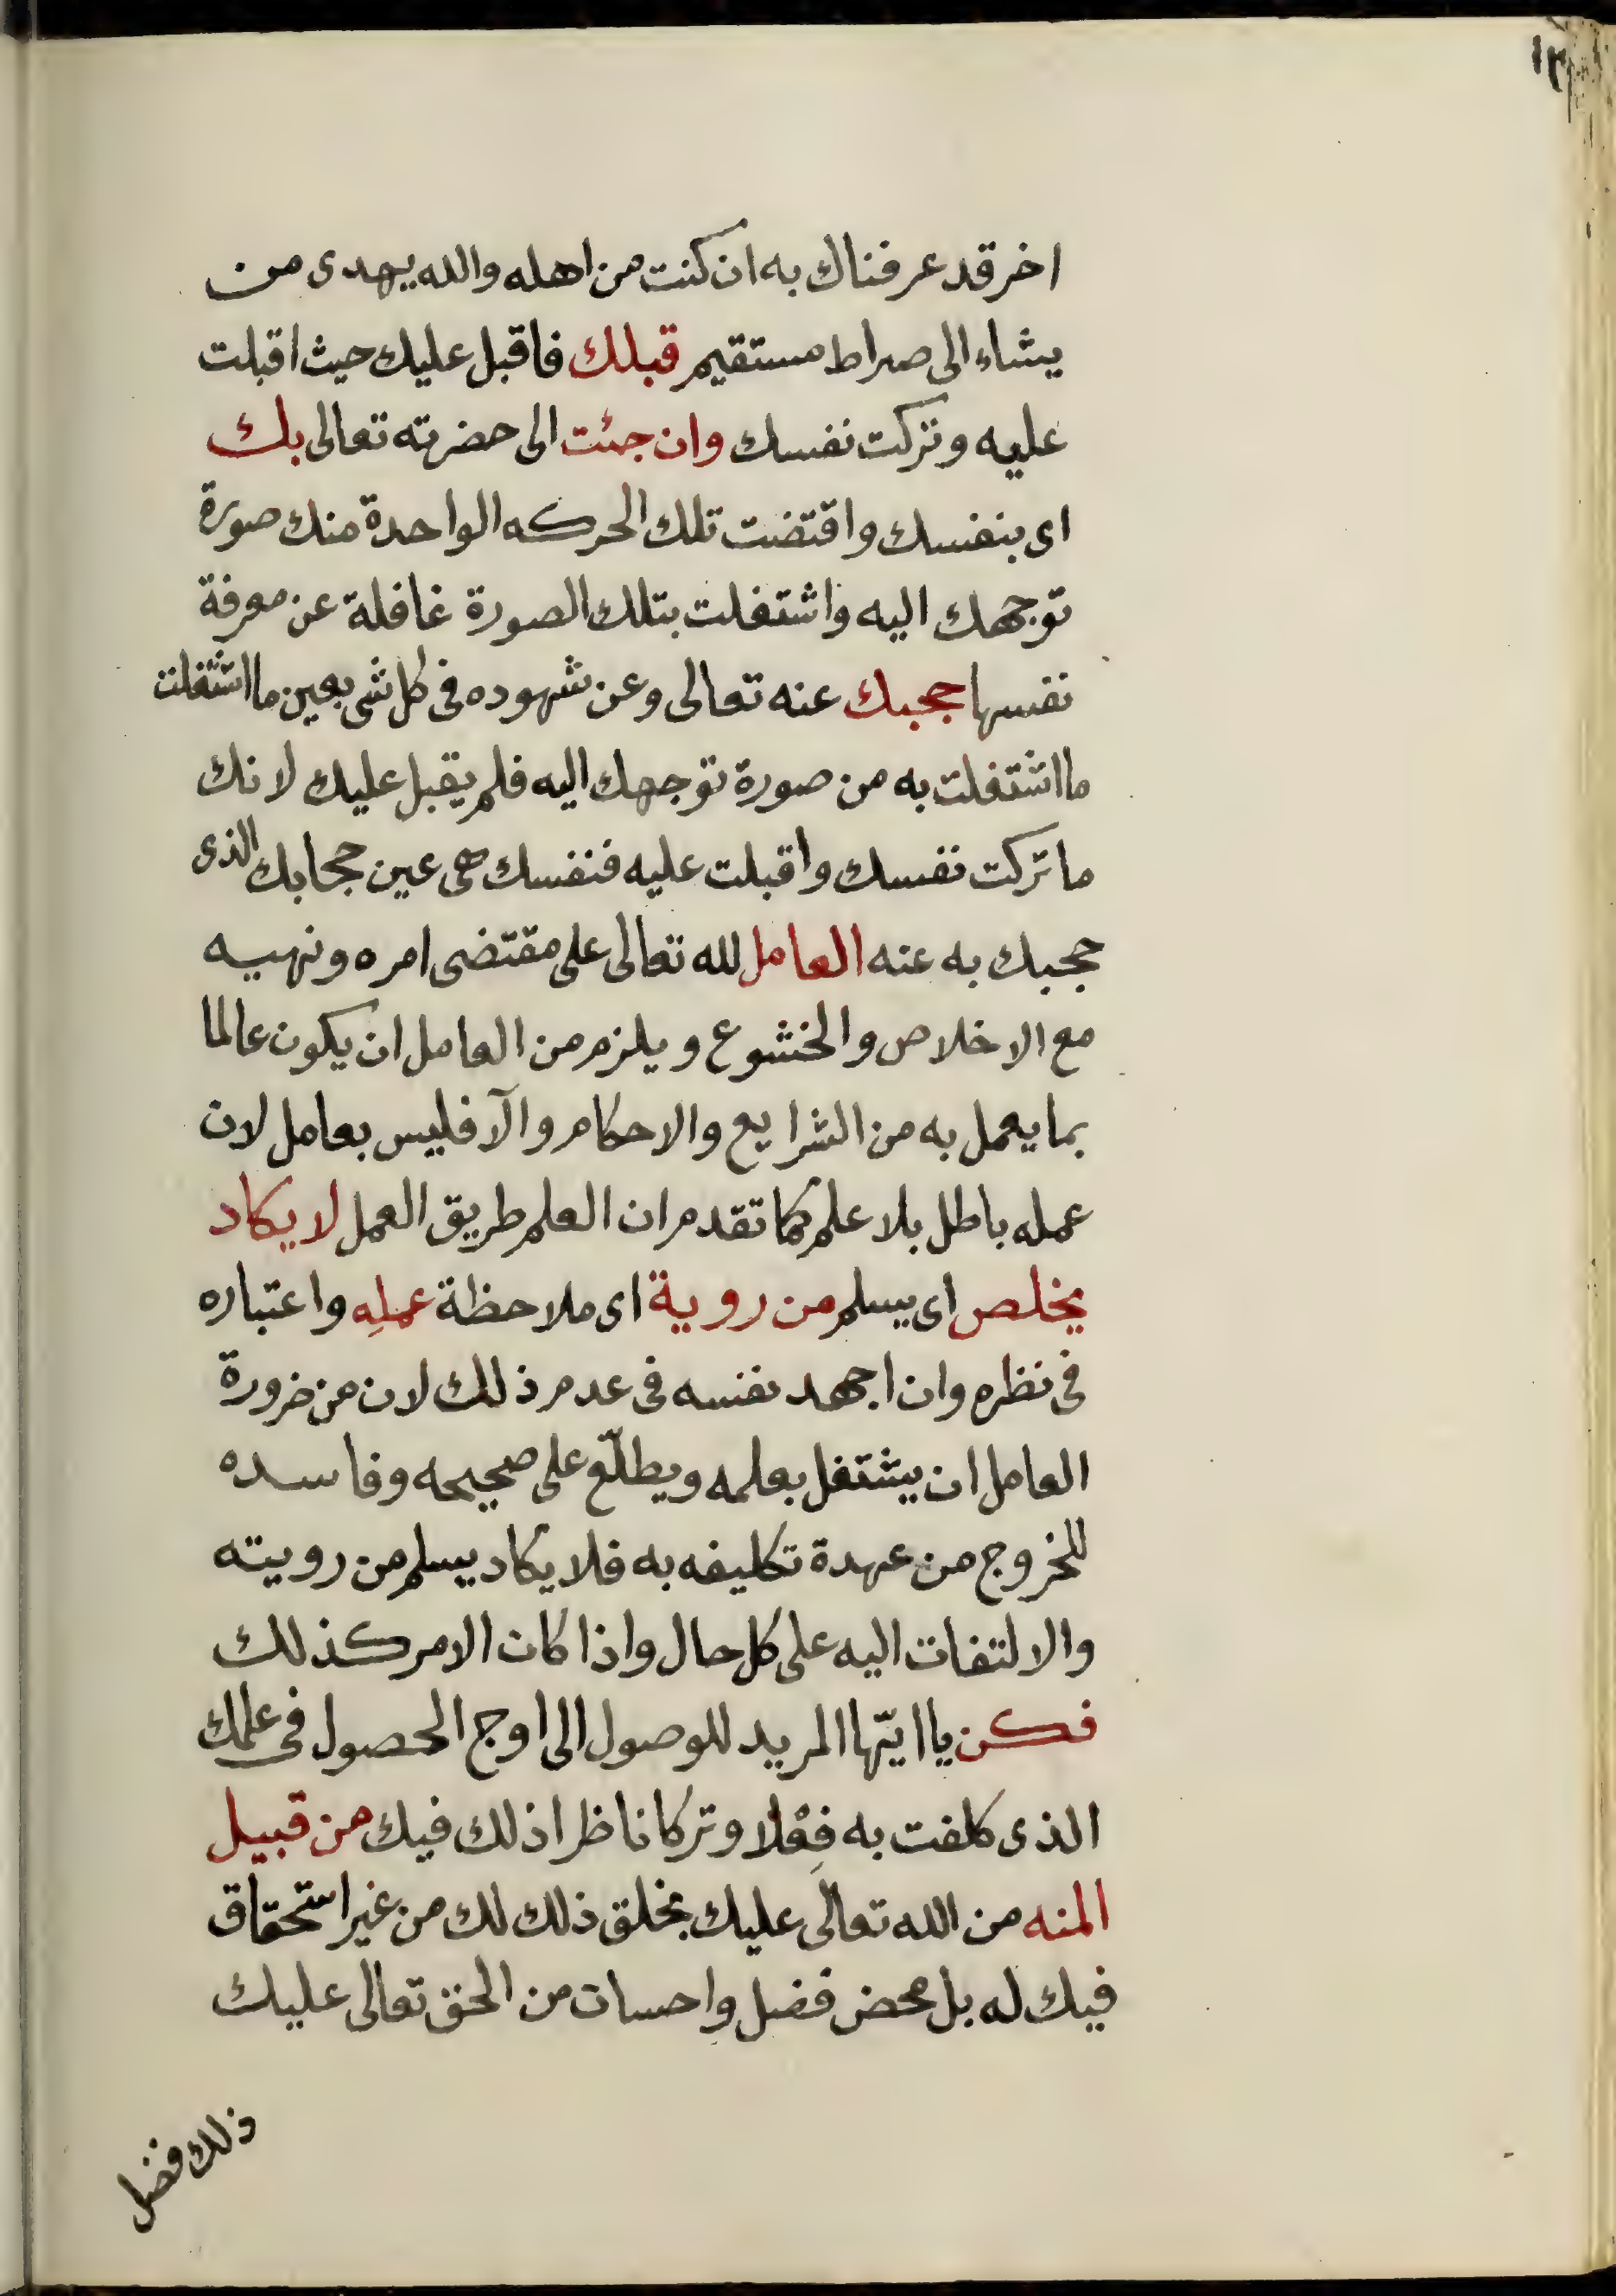 اخر قد عرفناك به ان كنت من اهله والله يهدى من
يشاء الى صراط مستقيم قبلك فاقبل عليك حيث اقبلت
عليه وتركت نفسك وان جئت الى حضرته تعالى بك
اى بنفسك واقتضت تلك الحركه الواحدة منك صورة
توجهك اليه واشتغلت بتلك الصورة غافلة عن معرفة
نفسها حجبك عنه تعالى وعن شهوده فى كل شى بعين ما اشتغلت
ما اشتغلت به من صورة توجهك اليه فلم يقبل عليك لانك
ما تركت نفسك واقبلت عليه فنفسك هى عين حجابك الذى
حجبك به عنه العامل لله تعالى على مقتضى امره ونهيه
مع الاخلاص والخشوع ويلزم من العامل ان يكون عالما
بما يعمل به من الشرايع والاحكام والآ فليس بعامل لان
عمله باطل بلا علم كما تقدم ان العلم طريق العمل لا يكاد
يخلص اى يسلم من روية اى ملاحظة عمله واعتباره
فى نظره وان اجهد نفسه فى عدم ذلك لان من ضرورة
العامل ان يشتغل بعلمه ويطلّع على صحيحه وفاسده
للخروج من عهدة تكليفه به فلا يكاد يسلم من روييته
والالتفات اليه على كل حال واذا كان الامر كذلك
فكن يا ايّها المريد للوصول الى اوج الحصول فى علمك
الذى كلفت به فِعْلا وتركا ناظرا ذلك فيك من قبيل
المنه من الله تعالى عليك بخلق ذلك لك من غير استحقاق
فيك له بل محض فضل واحسان من الحق تعالى عليك
ذلك فضل